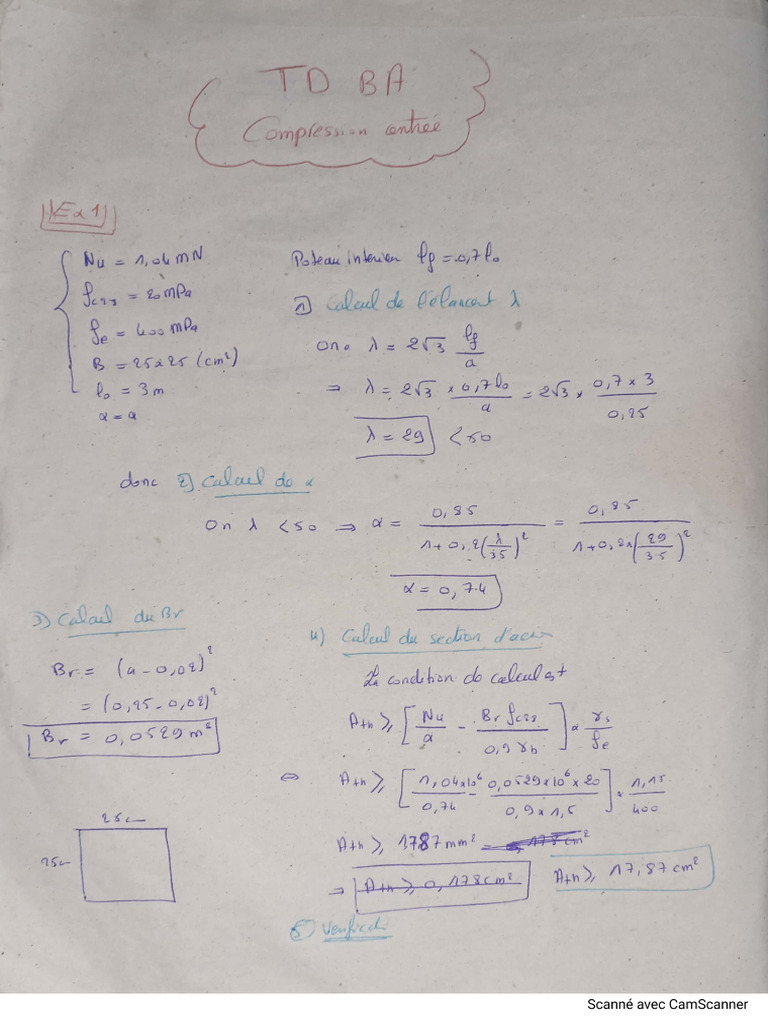 TD BA
Compression centrée
Ex 1)
Nu = 1,04 MN
fc28 = 20 MPa
fe = 400 MPa
B = 25 x 25 (cm²)
l0 = 3 m
a = a
Poteau interieur lf = 0,7 l0
1) Calcul de l'élancement λ
On a λ = 2√3 lf/a
⇒ λ = 2√3 × 0,7 l0/a = 2√3 × 0,7 × 3/0,25
λ = 29 < 50
donc 2) Calcul de α
On λ < 50 ⇒ α = 0,85/(1+0,2(λ/35)²) = 0,85/(1+0,2x(29/35)²)
α = 0,74
3) Calcul du Br
Br = (a - 0,02)²
= (0,25 - 0,02)²
Br = 0,0529 m²
25c
25c
4) Calcul du section d'acier
La condition de calcul est
Ath ⩾ [Nu/α - Br fc28/0,9 γb] × γs/fe
⇔ Ath ⩾ [1,04x10⁶/0,74 - 0,0529x10⁶ x 20/0,9 x 1,5] × 1,15/400
Ath ⩾ 1787 mm² = 178 cm²
⇒ Ath ⩾ 0,178 cm²
Ath ⩾ 17,87 cm²
5) Verificati
Scanné avec CamScanner